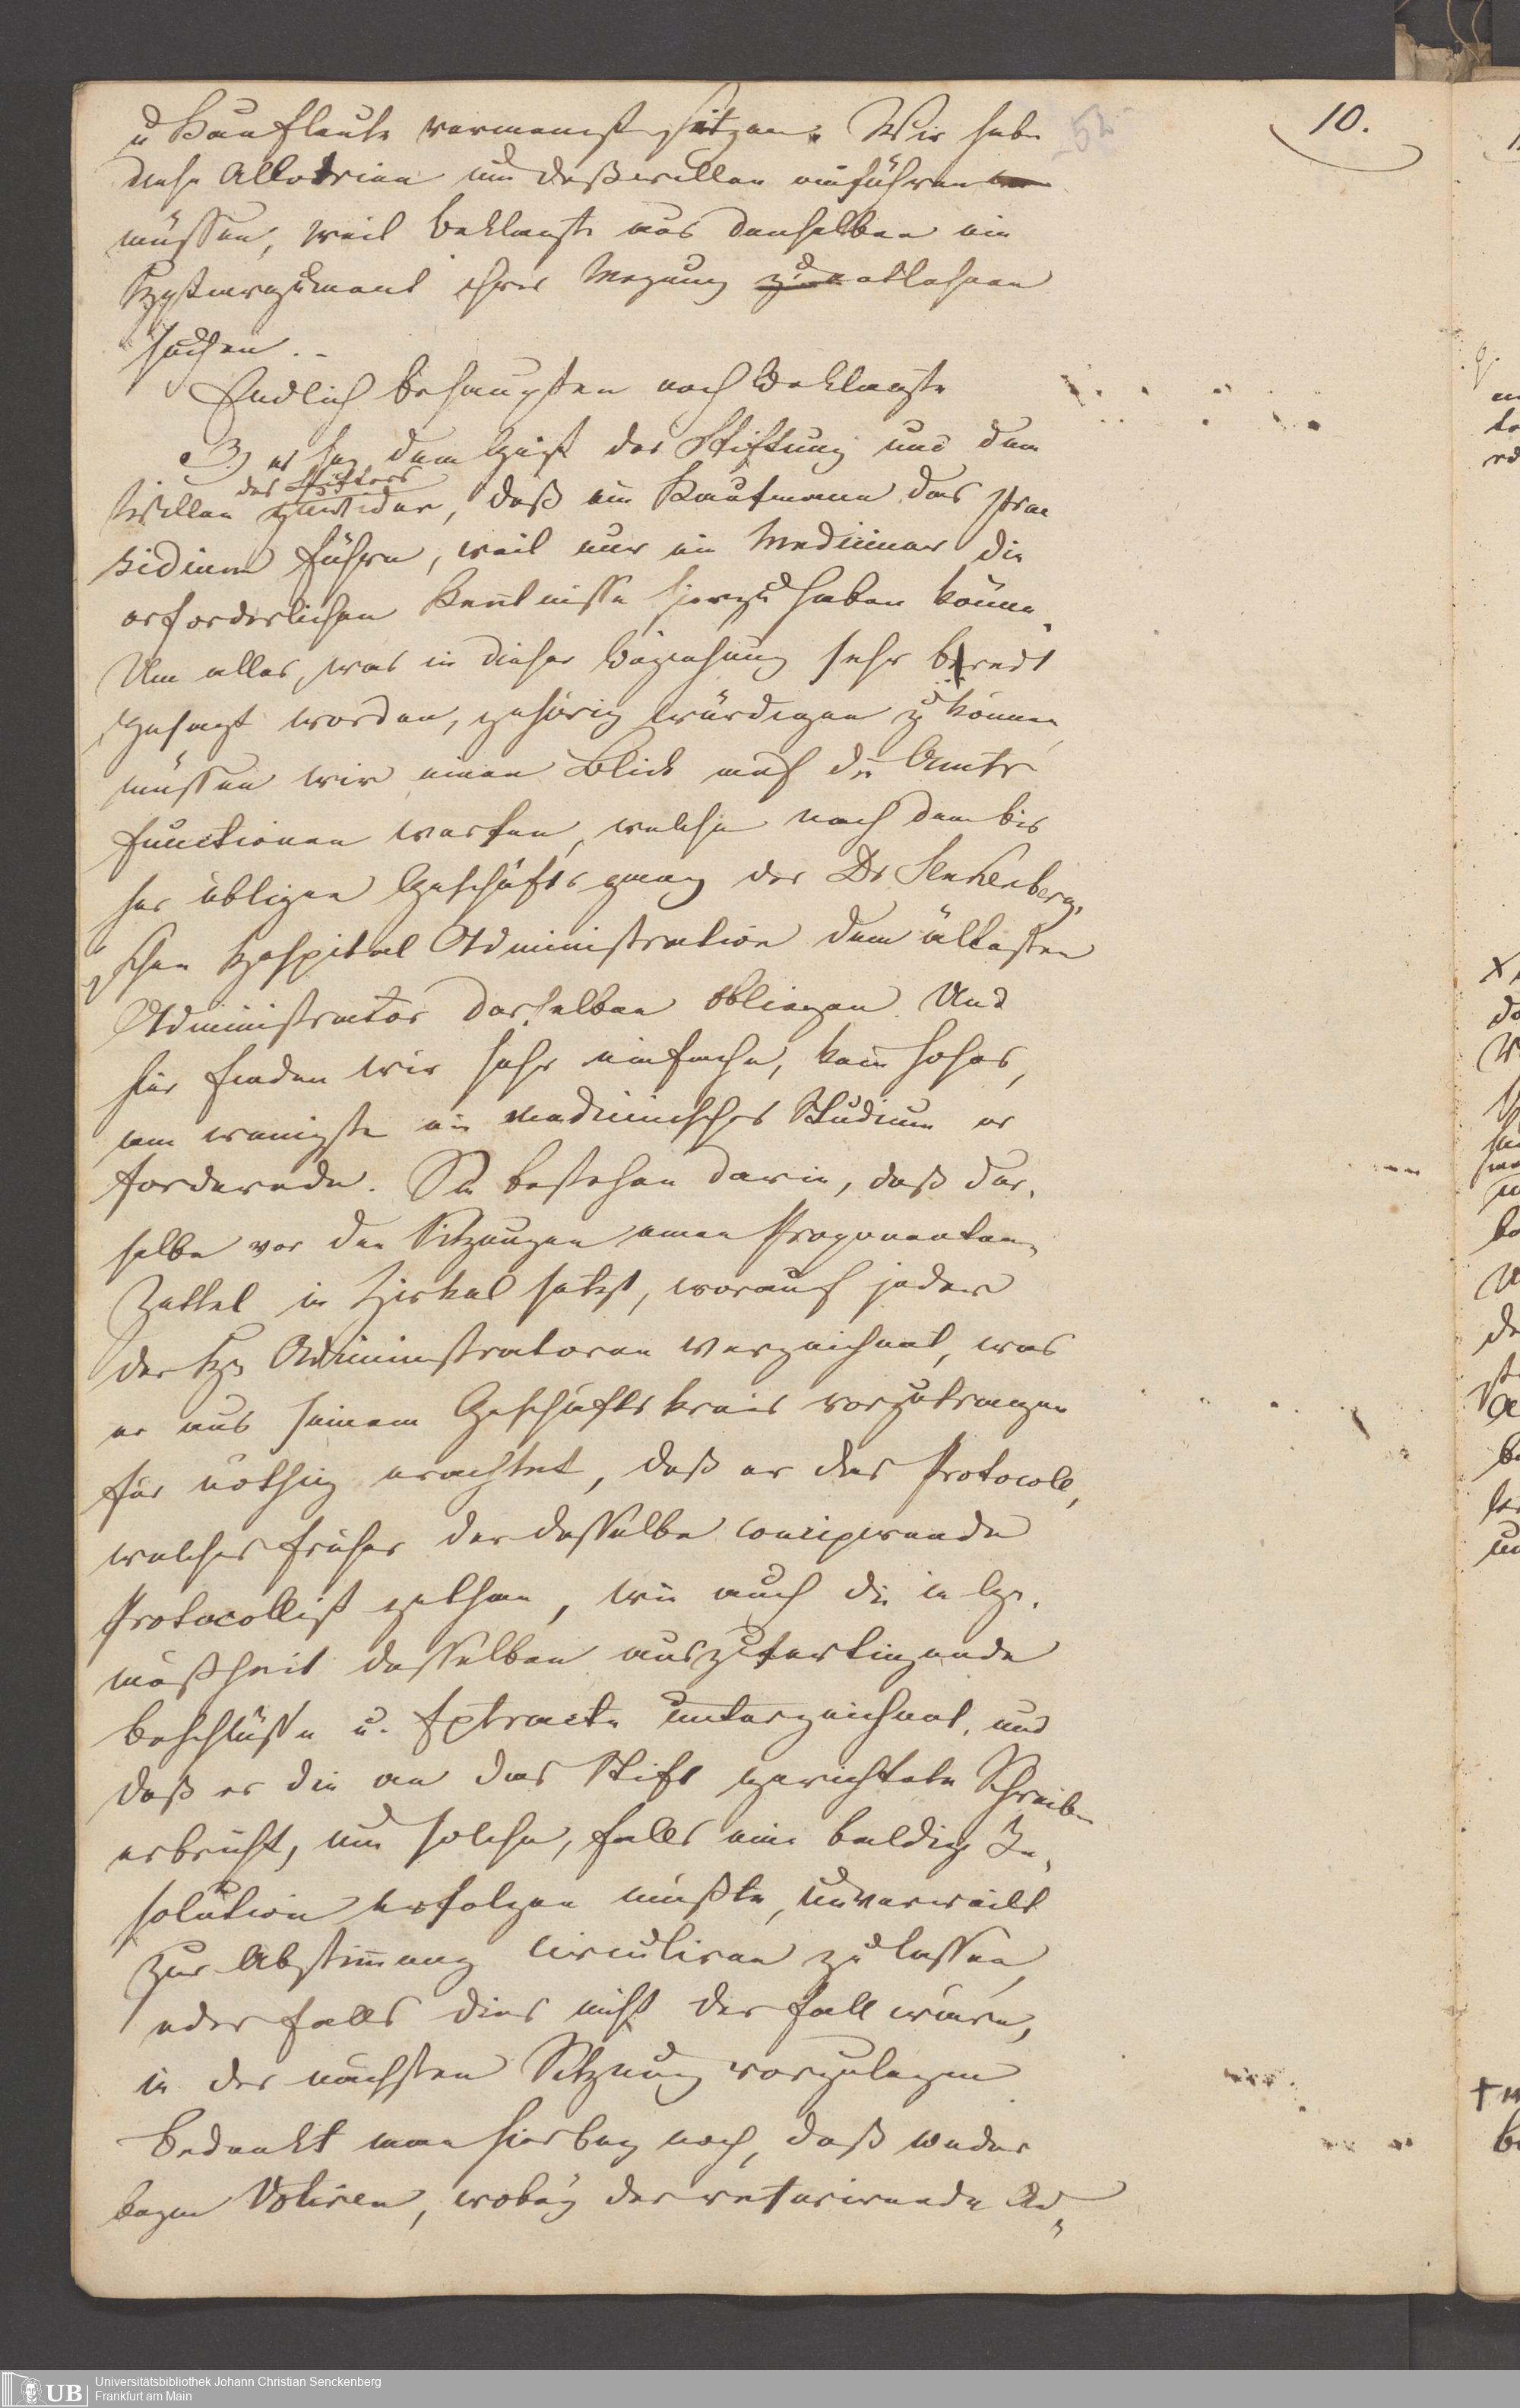 10.
52
u Kaufleute vermengt sitzen. Wir habe
diese Allotrien um deßwillen einführen
müssen, weil Beklagte aus denselben ein
Hystargument ihrer Meynung zu entlehnen
suchen. -
Endlich behaupten noch Beklagte
3) es sey dem Geist der Stiftung und dem
Willen des Stifters zuwider, daß ein Kaufmann das Prae
sidium führe, weil nur ein Mediciner die
erforderlichen Kentnisse hierzu haben könne.
Um alles, was in dieser Beziehung sehr beredt
gesagt worden, gehörig würdigen zu können,
müssen wir einen Blick auf die Amts
functionen werfen, welche nach dem bis
her übligen Geschäftsgang der Dr Senkenberg,
schen Hospital Administration dem ältesten
Administrator derselben obliegen. Und
hier finden wir sehr einfache, kein hohes,
am wenigste ein medicinisches Studium er
fordernde. Sie bestehen darin, daß der,
selbe vor den Sitzungen einen Proponenten,
Zettel in Zirkel setzt, worauf jeder
der H. Administratoren verzeichnet, was
er aus seinem Geschäftskreis vorzutragen
für nöthig erachtet, daß er das Protocoll,
welches früher der dasselbe concipirende
Protocollist gethan, wie auch die in Ge,
mäßheit desselben auszufertingende
Beschlüsse u. Extracte unterzeichnet, und
daß er die an das Stift gerichtete Schreiben
erbricht, um solche, falls eine baldige Re,
solution erfolgen müßte, unverweilt
zur Abstimmung circuliren zu lassen,
oder falls dies nicht der Fall wäre,
in der nächsten Sitzung vorzulegen
Bedenkt man hierbey noch, daß weder
beym Votiren, wobey der referirende Ad,
Universitätsbibliothek Johann Christian Senckenberg
Frankfurt am Main
UB